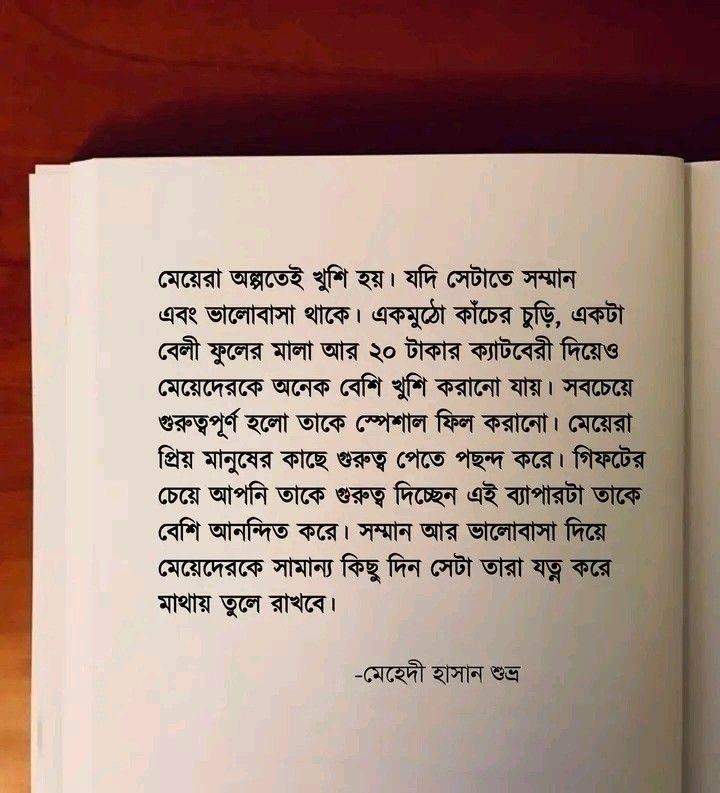 মেয়েরা অল্পতেই খুশি হয়। যদি সেটাতে সম্মান
এবং ভালোবাসা থাকে। একমুঠো কাঁচের চুড়ি, একটা
বেলী ফুলের মালা আর ২০ টাকার ক্যাটবেরী দিয়েও
মেয়েদেরকে অনেক বেশি খুশি করানো যায়। সবচেয়ে
গুরুত্বপূর্ণ হলো তাকে স্পেশাল ফিল করানো। মেয়েরা
প্রিয় মানুষের কাছে গুরুত্ব পেতে পছন্দ করে। গিফটের
চেয়ে আপনি তাকে গুরুত্ব দিচ্ছেন এই ব্যাপারটা তাকে
বেশি আনন্দিত করে। সম্মান আর ভালোবাসা দিয়ে
মেয়েদেরকে সামান্য কিছু দিন সেটা তারা যত্ন করে
মাথায় তুলে রাখবে।
-মেহেদী হাসান শুভ্র